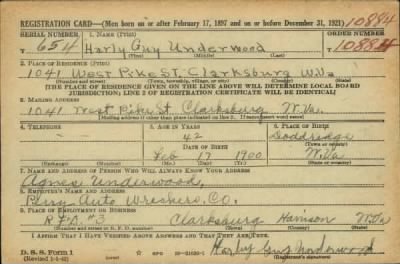 REGISTRATION CARD—(Men born on or after February 17, 1897 and on or before December 31, 1921) 10884
SERIAL NUMBER 1. NAME (Print) ORDER NUMBER
T 654 Harly Guy Underwood 10884
(First) (Middle) (Last)
2. PLACE OF RESIDENCE (Print)
1041 West Pike St. Clarksburg W.Va
(Number and street) (Town, township, village, or city) (County) (State)
[THE PLACE OF RESIDENCE GIVEN ON THE LINE ABOVE WILL DETERMINE LOCAL BOARD
JURISDICTION; LINE 2 OF REGISTRATION CERTIFICATE WILL BE IDENTICAL]
3. MAILING ADDRESS
1041 West Pike St Clarksburg W.Va.
[Mailing address if other than place indicated on line 2. If same insert word same]
4. TELEPHONE 5. AGE IN YEARS 6. PLACE OF BIRTH
42 Doddridge
DATE OF BIRTH (Town or county)
Feb 17 1900 W.Va
(Exchange) (Number) (Mo.) (Day) (Yr.) (State or country)
7. NAME AND ADDRESS OF PERSON WHO WILL ALWAYS KNOW YOUR ADDRESS
Agnes Underwood,
8. EMPLOYER'S NAME AND ADDRESS
Auto Wreckers. Co.
9. PLACE OF EMPLOYMENT OR BUSINESS
R.F.D. #3 Clarksburg Harrison W.Va
(Number and street or R. F. D. number) (Town) (County) (State)
I AFFIRM THAT I HAVE VERIFIED ABOVE ANSWERS AND THAT THEY ARE TRUE.
D. S. S. Form 1
(Revised 1-1-42) GPO 16—21630-1 Harly Guy Underwood
(Registrant's signature)